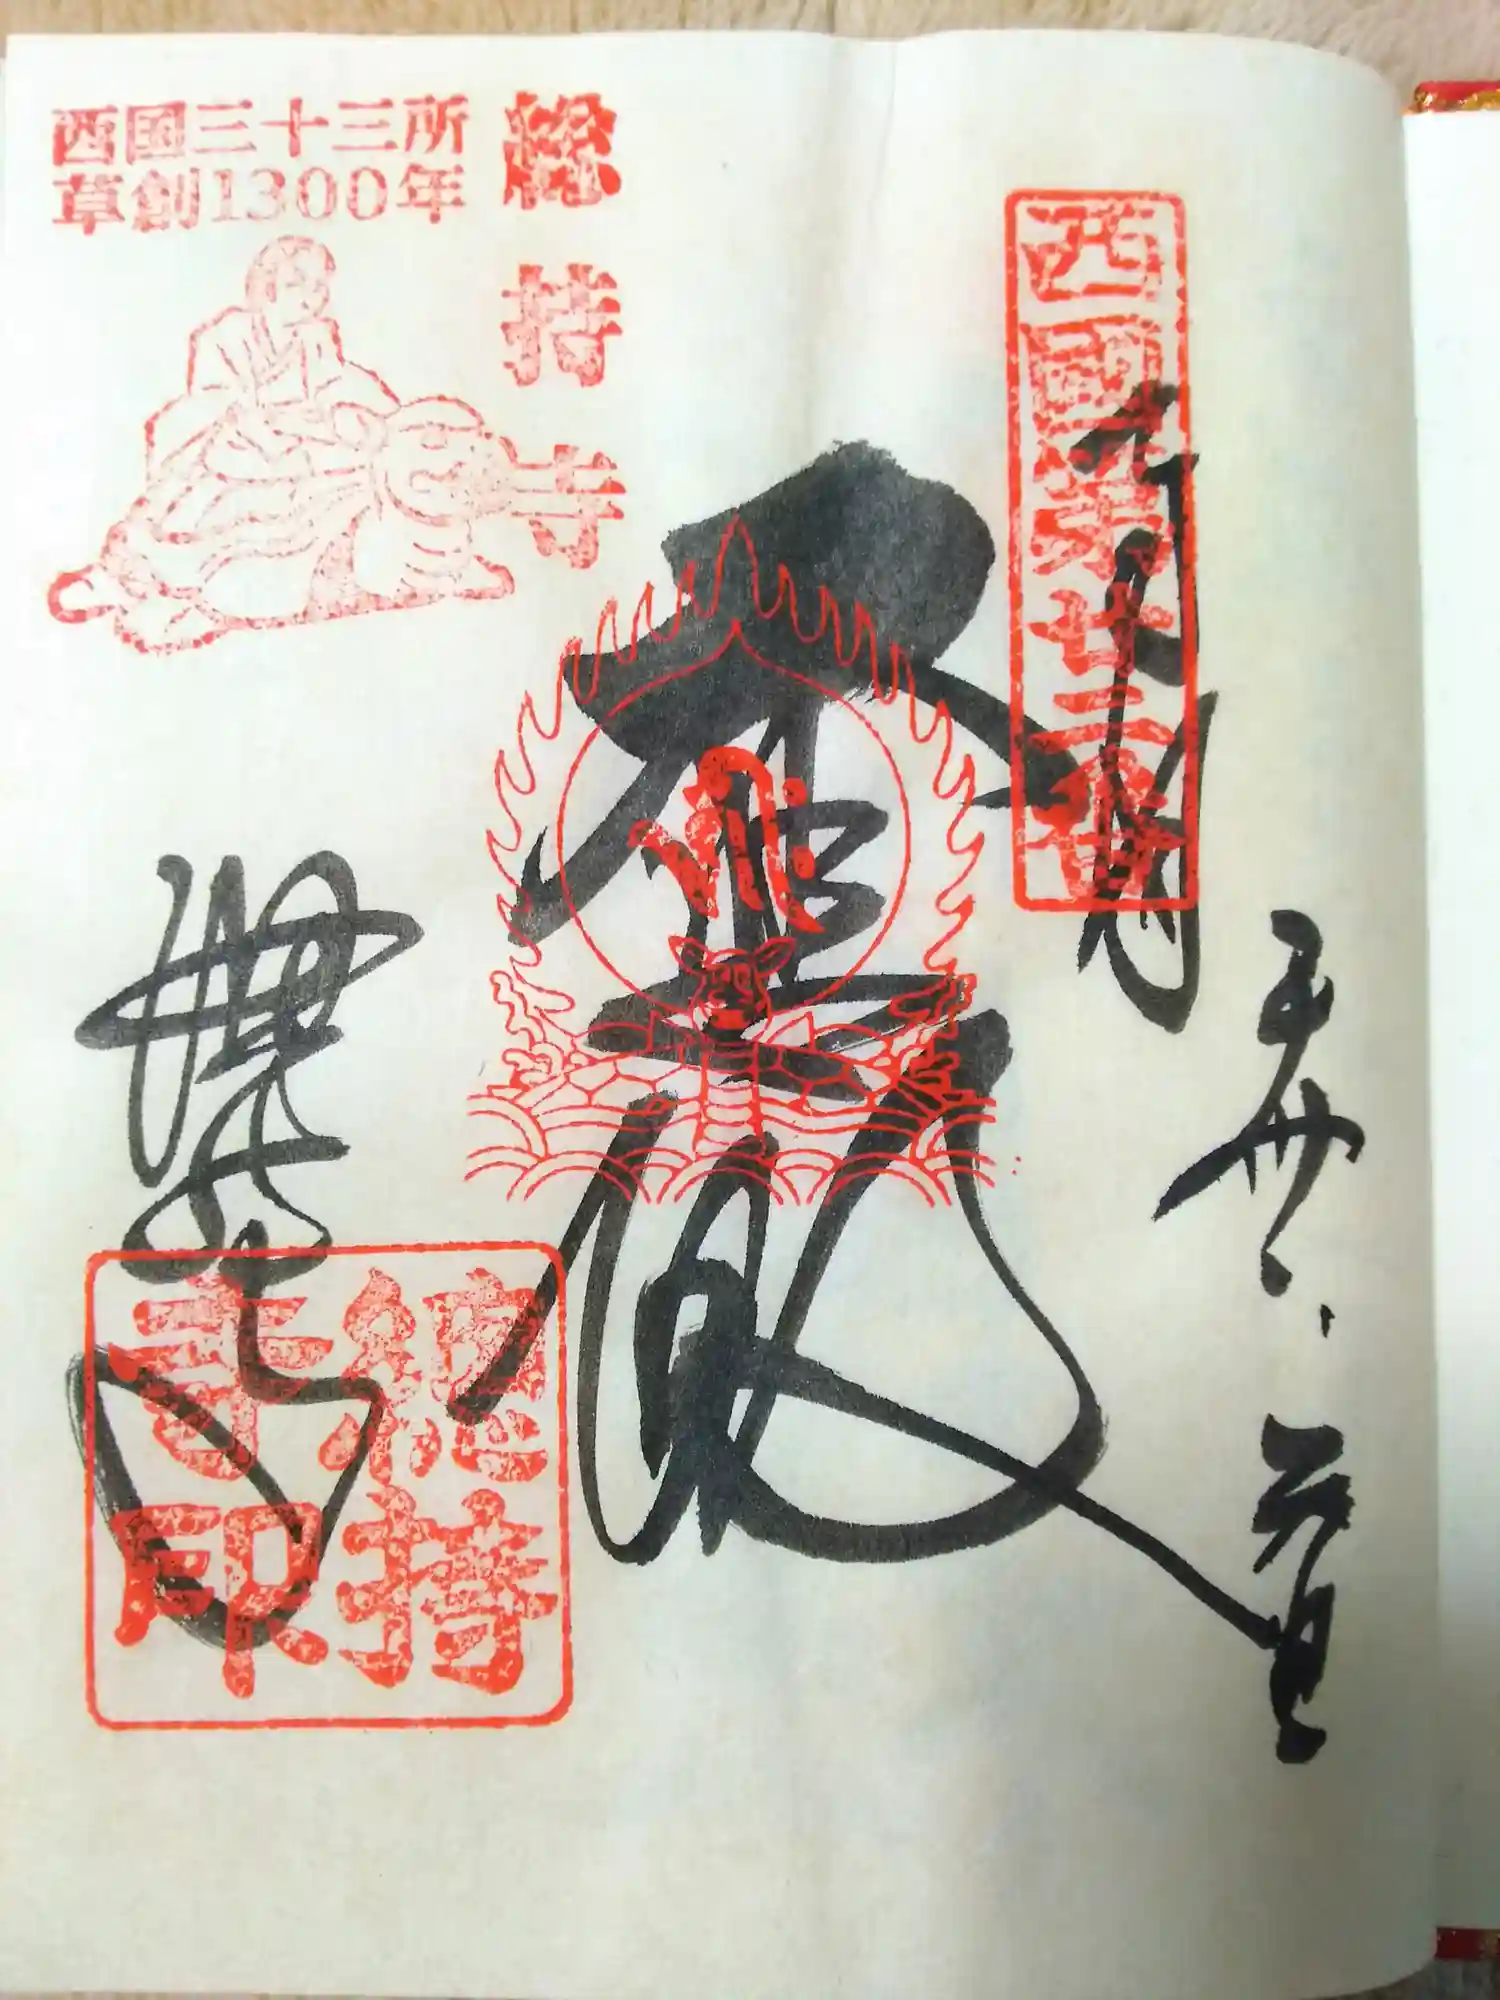 西国三十三所
草創1300年
総持寺
西國第廿二番
奉拝
大悲殿
總持寺
總持寺印